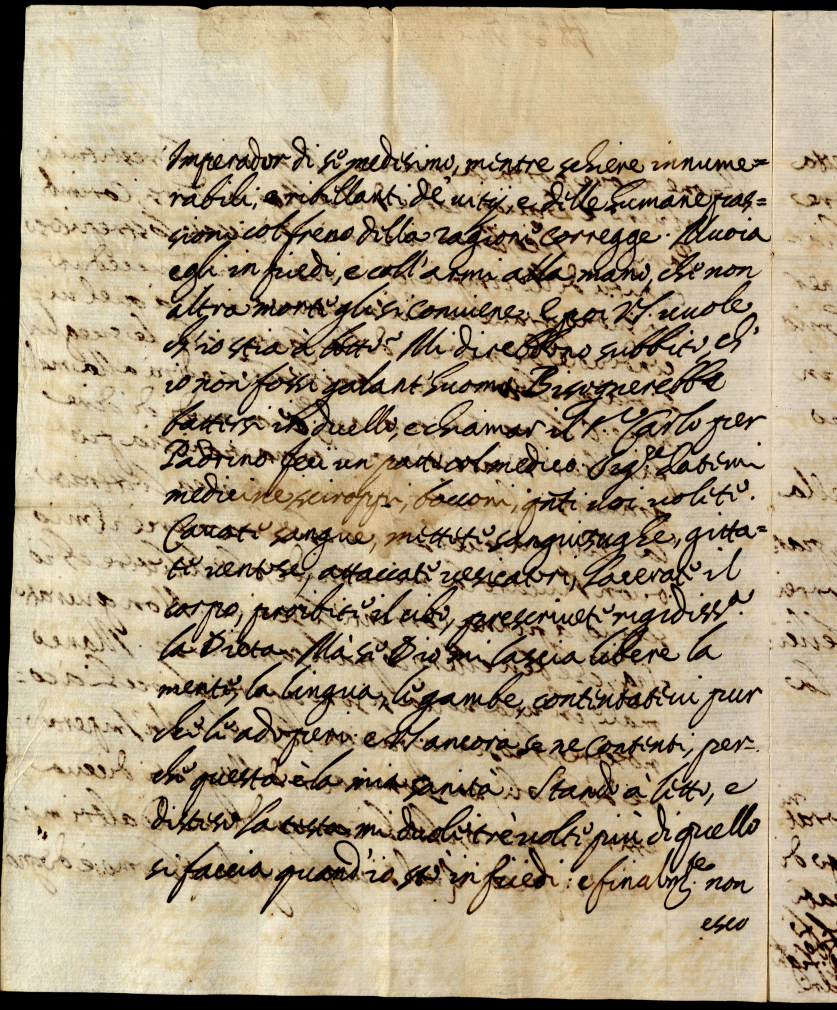 Imperador di se medesimo, mentre schiere innume=
rabili, e ribellanti de' uitij, e delle humane pas=
sioni col freno della ragione corregge. Muoia
egli in piedi, e coll'armi alla mano, che non
altra morte gli si conuiene. E poi V.S. uuole
ch'io stia à letto? Mi direbbono subbito, ch'
io non fossi galant'huomo. Bisognerebbe
battersi in duello, e chiamar il Carlo per
Padrino. feci un patto col medico. Sig.re datemi
medicine sciroppi, bocconi, q.nti uoi uolete.
Cauate sangue, mettete sanguisughe, gitta=
te uentose, attaccate uesicatori, lacerate il
corpo, proibite il cibo, prescriuete rigidiss.a
la Dieta. Mà se Dio mi lascia libere la
mente, la lingua, le gambe, contentateui pur
che le adoperi: e V.S. ancora se ne contenti, per=
che questa è la mia sanità. Stando à letto, e
disteso la testa mi duole trè uolte più di quello
si faccia quand'io stò in piedi: e finalm.te non
esco